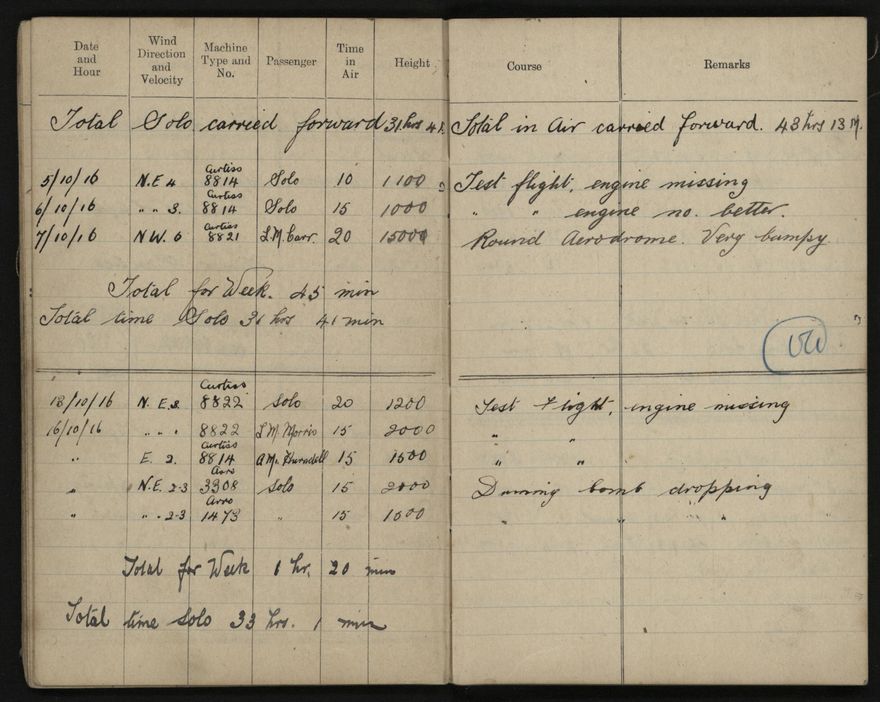 Date and Hour Wind Direction and Velocity Machine Type and No. Passenger Time in Air Height Course Remarks
Total Solo carried forward 31 hrs 41. Total in Air carried forward. 43 hrs 13 M.
Curtiss
5/10/16 N.E 4 8814 Solo 10 1100 Test flight, engine missing
Curtiss
6/10/16 " " 3. 8814 Solo 15 1000 " " engine no. better.
Curtiss
7/10/16 NW. 6 8821 L.M. Carr. 20 15000 Round Aerodrome. Very bumpy.
Total for Week. 45 min
Total time Solo 31 hrs 41 min
Curtiss
13/10/16 N. E.3. 8822 Solo 20 1200 Test Flight, engine missing
16/10/16 " " " 8822 L.M. Morris 15 2000 " "
Curtiss
" E. 2. 8814 15 1500 " "
Avro
" N.E. 2-3 3308 Solo 15 2000 Dummy bomb dropping
Avro
" " " 2-3 1473 " 15 1500 " " "
Total for Week 1 hr. 20 min
Total time Solo 33 hrs. 1 min